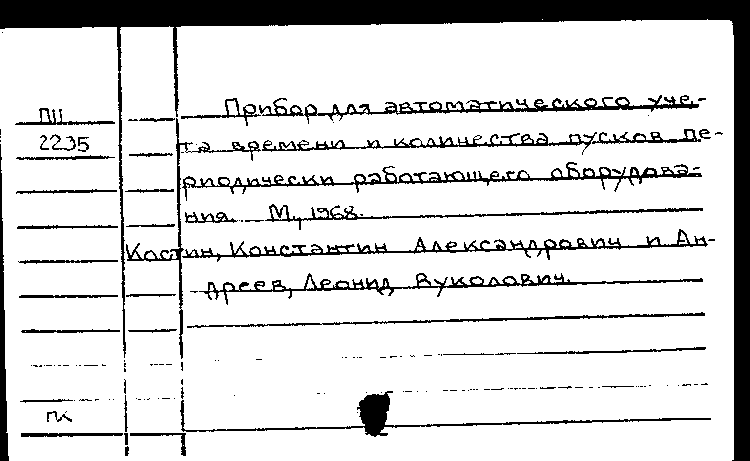 Прибор для автоматического уче-
ПII
та времени и количества пусков пе-
2235
риодически работающего оборудова-
ния. М., 1968.
Костин, Константин Александрович и Ан-
дреев, Леонид Вуколович.
ПК